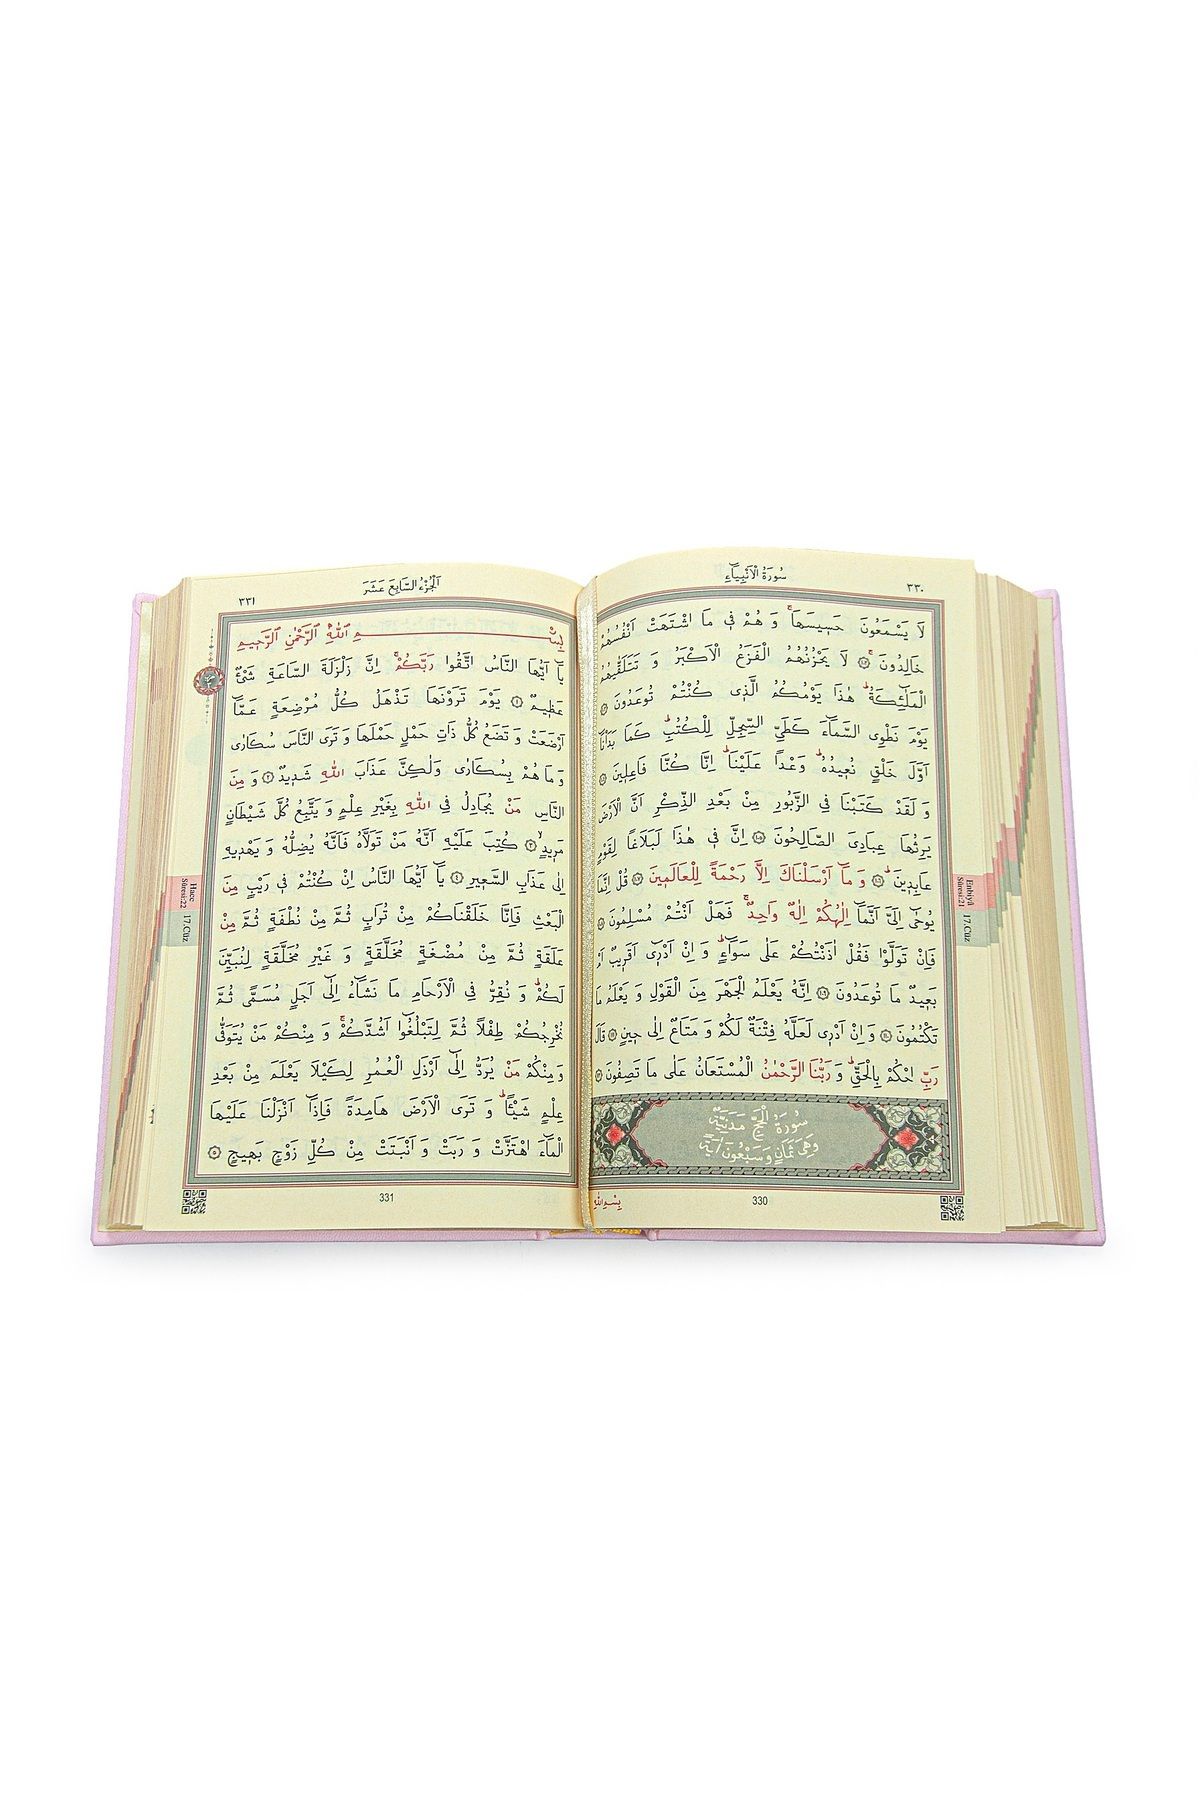 ٣٣٠
سُورَةُ الْاَنْبِيَاءِ
لَا يَسْمَعُونَ حَسٖيسَهَاۚ وَ هُمْ فٖي مَا اشْتَهَتْ اَنْفُسُهُمْ
خَالِدُونَۚ ﴿١٠٢﴾ لَا يَحْزُنُهُمُ الْفَزَعُ الْاَكْبَرُ وَ تَتَلَقّٰيهُمُ
الْمَلٰٓئِكَةُۜ هٰذَا يَوْمُكُمُ الَّذٖي كُنْتُمْ تُوعَدُونَ ﴿١٠٣﴾
يَوْمَ نَطْوِي السَّمَٓاءَ كَطَيِّ السِّجِلِّ لِلْكُتُبِۜ كَمَا بَدَأْنَٓا
اَوَّلَ خَلْقٍ نُعٖيدُهُۜ وَعْداً عَلَيْنَاۜ اِنَّا كُنَّا فَاعِلٖينَ ﴿١٠٤﴾
وَ لَقَدْ كَتَبْنَا فِي الزَّبُورِ مِنْ بَعْدِ الذِّكْرِ اَنَّ الْاَرْضَ
يَرِثُهَا عِبَادِيَ الصَّالِحُونَ ﴿١٠٥﴾ اِنَّ فٖي هٰذَا لَبَلَاغاً لِقَوْمٍ
عَابِدٖينَۜ ﴿١٠٦﴾ وَ مَٓا اَرْسَلْنَاكَ اِلَّا رَحْمَةً لِلْعَالَمٖينَ ﴿١٠٧﴾ قُلْ اِنَّمَا
يُوحٰٓى اِلَيَّ اَنَّمَٓا اِلٰهُكُمْ اِلٰهٌ وَاحِدٌۚ فَهَلْ اَنْتُمْ مُسْلِمُونَ ﴿١٠٨﴾
فَاِنْ تَوَلَّوْا فَقُلْ اٰذَنْتُكُمْ عَلٰى سَوَٓاءٍۜ وَ اِنْ اَدْرٖٓي اَقَرٖيبٌ اَمْ
بَعٖيدٌ مَا تُوعَدُونَ ﴿١٠٩﴾ اِنَّهُ يَعْلَمُ الْجَهْرَ مِنَ الْقَوْلِ وَ يَعْلَمُ مَا
تَكْتُمُونَ ﴿١١٠﴾ وَ اِنْ اَدْرٖي لَعَلَّهُ فِتْنَةٌ لَكُمْ وَ مَتَاعٌ اِلٰى حٖينٍ ﴿١١١﴾ قَالَ
رَبِّ احْكُمْ بِالْحَقِّۜ وَ رَبُّنَا الرَّحْمٰنُ الْمُسْتَعَانُ عَلٰى مَا تَصِفُونَ ﴿١١٢﴾
سُورَةُ الْحَجِّ مَدَنِيَّةٌ
وَهِيَ ثَمَانٍ وَسَبْعُونَ اٰيَةً
بِسْمِ اللّٰهِ
330
Enbiyâ
Sûresi:21
17.Cüz
اَلْجُزْءُ السَّابِعَ عَشَرَ
٣٣١
بِسْمِ اللّٰهِ الرَّحْمٰنِ الرَّحٖيمِ
يَٓا اَيُّهَا النَّاسُ اتَّقُوا رَبَّكُمْۚ اِنَّ زَلْزَلَةَ السَّاعَةِ شَيْءٌ
عَظٖيمٌ ﴿١﴾ يَوْمَ تَرَوْنَهَا تَذْهَلُ كُلُّ مُرْضِعَةٍ عَمَّٓا
اَرْضَعَتْ وَ تَضَعُ كُلُّ ذَاتِ حَمْلٍ حَمْلَهَا وَ تَرَى النَّاسَ سُكَارٰى
وَ مَا هُمْ بِسُكَارٰى وَلٰكِنَّ عَذَابَ اللّٰهِ شَدٖيدٌ ﴿٢﴾ وَ مِنَ
النَّاسِ مَنْ يُجَادِلُ فِي اللّٰهِ بِغَيْرِ عِلْمٍ وَ يَتَّبِعُ كُلَّ شَيْطَانٍ
مَرٖيدٍۙ ﴿٣﴾ كُتِبَ عَلَيْهِ اَنَّهُ مَنْ تَوَلَّاهُ فَاَنَّهُ يُضِلُّهُ وَ يَهْدٖيهِ
اِلٰى عَذَابِ السَّعٖيرِ ﴿٤﴾ يَٓا اَيُّهَا النَّاسُ اِنْ كُنْتُمْ فٖي رَيْبٍ مِنَ
الْبَعْثِ فَاِنَّا خَلَقْنَاكُمْ مِنْ تُرَابٍ ثُمَّ مِنْ نُطْفَةٍ ثُمَّ مِنْ
عَلَقَةٍ ثُمَّ مِنْ مُضْغَةٍ مُخَلَّقَةٍ وَ غَيْرِ مُخَلَّقَةٍ لِنُبَيِّنَ
لَكُمْۜ وَ نُقِرُّ فِي الْاَرْحَامِ مَا نَشَٓاءُ اِلٰٓى اَجَلٍ مُسَمًّى ثُمَّ
نُخْرِجُكُمْ طِفْلاً ثُمَّ لِتَبْلُغُٓوا اَشُدَّكُمْۚ وَ مِنْكُمْ مَنْ يُتَوَفّٰى
وَ مِنْكُمْ مَنْ يُرَدُّ اِلٰٓى اَرْذَلِ الْعُمُرِ لِكَيْلَا يَعْلَمَ مِنْ بَعْدِ
عِلْمٍ شَيْـٔاًۜ وَ تَرَى الْاَرْضَ هَامِدَةً فَاِذَٓا اَنْزَلْنَا عَلَيْهَا
الْمَٓاءَ اهْتَزَّتْ وَ رَبَتْ وَ اَنْبَتَتْ مِنْ كُلِّ زَوْجٍ بَهٖيجٍ ﴿٥﴾
331
Hacc
Sûresi:22
17.Cüz